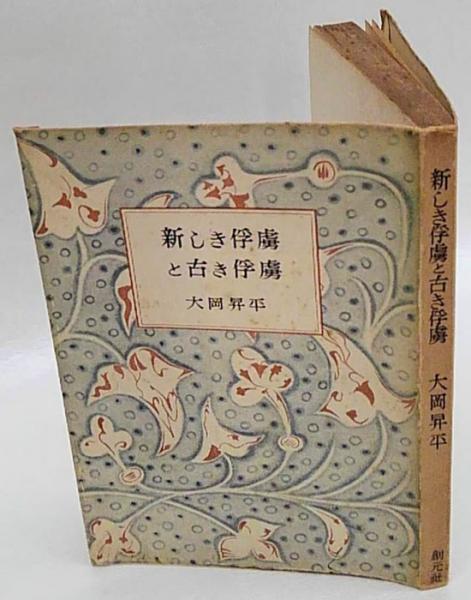 新しき俘虜
と古き俘虜
大岡昇平
新しき俘虜と古き俘虜
大岡昇平
創元社